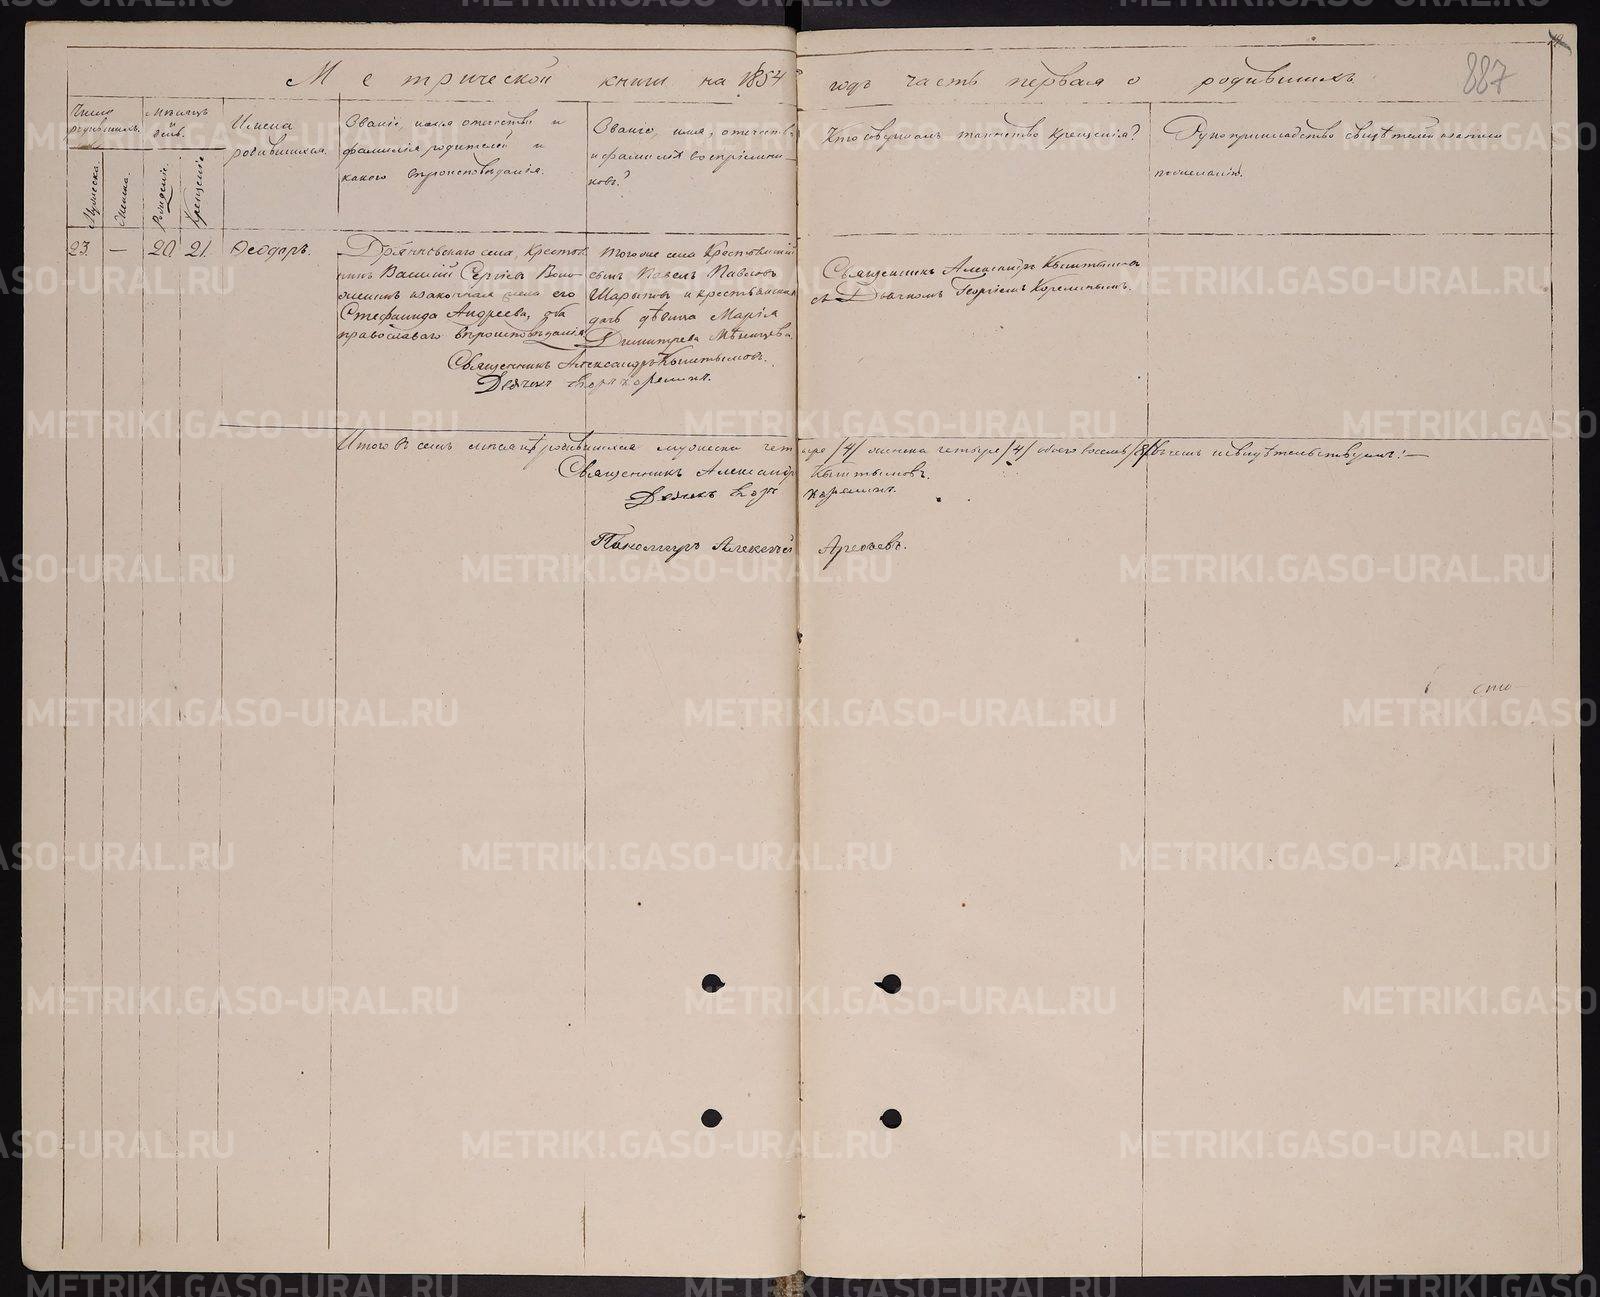 887
Метрической книги на 1854 годъ часть первая о родившихъ
Число родившихъ.
Мѣсяцъ и день.
Мужеска.
Женска.
Рожденіе.
Крещеніе
Имена родившихся.
Званіе, имя отчество и
фамилія родителей и
какого вѣроисповѣданія.
Званіе, имя, отчество
и фамилія воспріемни-
ковъ?
Кто совершалъ таинство крещенія?
Рукоприкладство свидѣтелей записи
по желанію.
23. — 20 21. Ѳеодоръ.
села, Крестьян
нинъ Василій Сергіевъ
и законная жена его
Стефанида Андреева, оба
православнаго вѣроисповѣданія
тогоже села Крестьянскій
сынъ Павелъ Павловъ
и крестьянская
дочь дѣвица Марія
Димитрева
Священникъ Александръ Кыштымовъ
съ Дьячкомъ Георгіемъ Корелинымъ.
Священникъ Александръ Кыштымовъ.
Дьячекъ Егоръ Корелинъ.
Итого въ семъ мѣсяцѣ родившихся мужеска четыре /4/ женска четыре /4/ обоего восемь /8/ въ чемъ и свидѣтельствуемъ: —
Священникъ Александръ Кыштымовъ.
Дьячекъ Егоръ Корелинъ.
Пономарь Алексѣй Арефьевъ.
METRIKI.GASO-URAL.RU